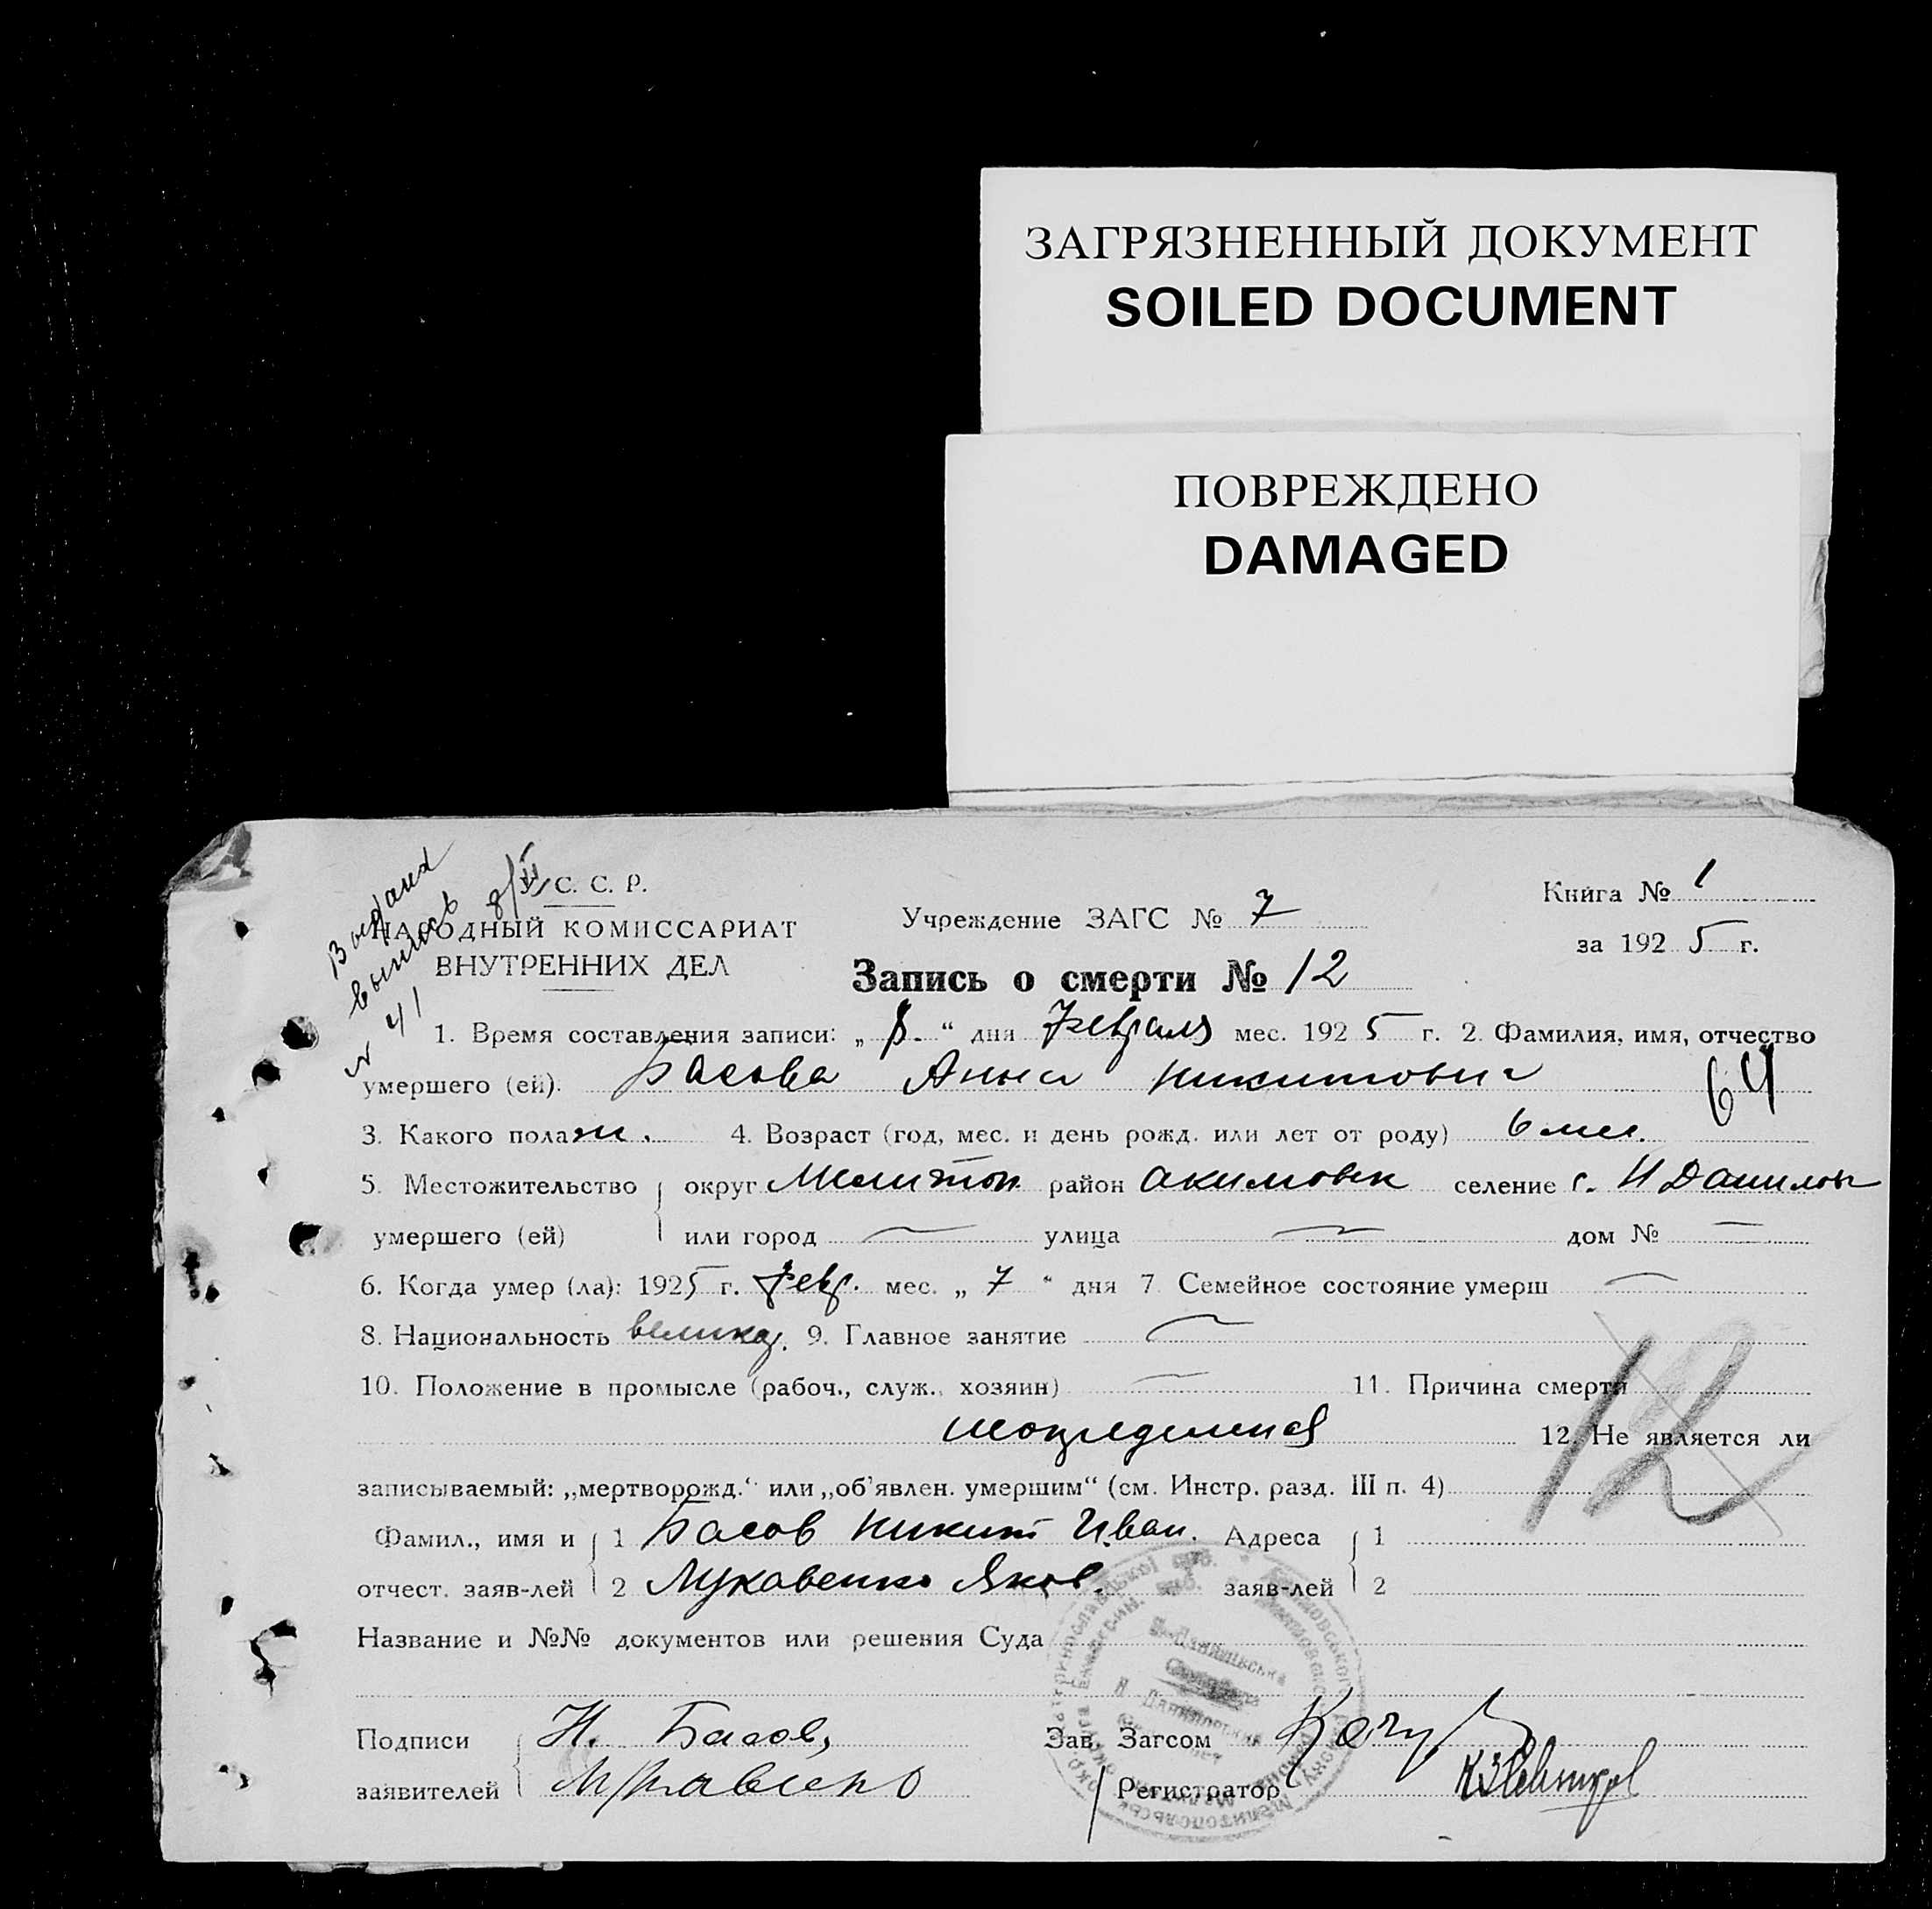 ЗАГРЯЗНЕННЫЙ ДОКУМЕНТ
SOILED DOCUMENT
ПОВРЕЖДЕНО
DAMAGED
Выдана
выпись 8/VI
№ 41
С. С. Р.
НАРОДНЫЙ КОМИССАРИАТ
ВНУТРЕННИХ ДЕЛ
Учреждение ЗАГС № 7
Книга № 1
за 1925 г.
Запись о смерти № 12
1. Время составления записи: „8.“ дня Февраля мес. 1925 г. 2. Фамилия, имя, отчество
умершего (ей). Басова Анна Никитовна
64
3. Какого пола ж. 4. Возраст (год, мес. и день рожд. или лет от роду) 6 мес.
5. Местожительство округ Мелитоп район Акимовск селение с. Н Данилов
умершего (ей) или город — улица — дом № —
6. Когда умер (ла): 1925 г. февр. мес. „7“ дня 7 Семейное состояние умерш —
8. Национальность великор. 9. Главное занятие —
10. Положение в промысле (рабоч., служ., хозяин) — 11. Причина смерти
12. Не является ли
12
записываемый: „мертворожд.“ или „об'явлен. умершим“ (см. Инстр. разд. III п. 4)
Фамил., имя и 1 Басов Никит Иван. Адреса 1
отчест. заяв-лей 2 Луковенко Яков. заяв-лей 2
Название и №№ документов или решения Суда
Подписи Н. Басов, Зав. Загсом
заявителей Регистратор